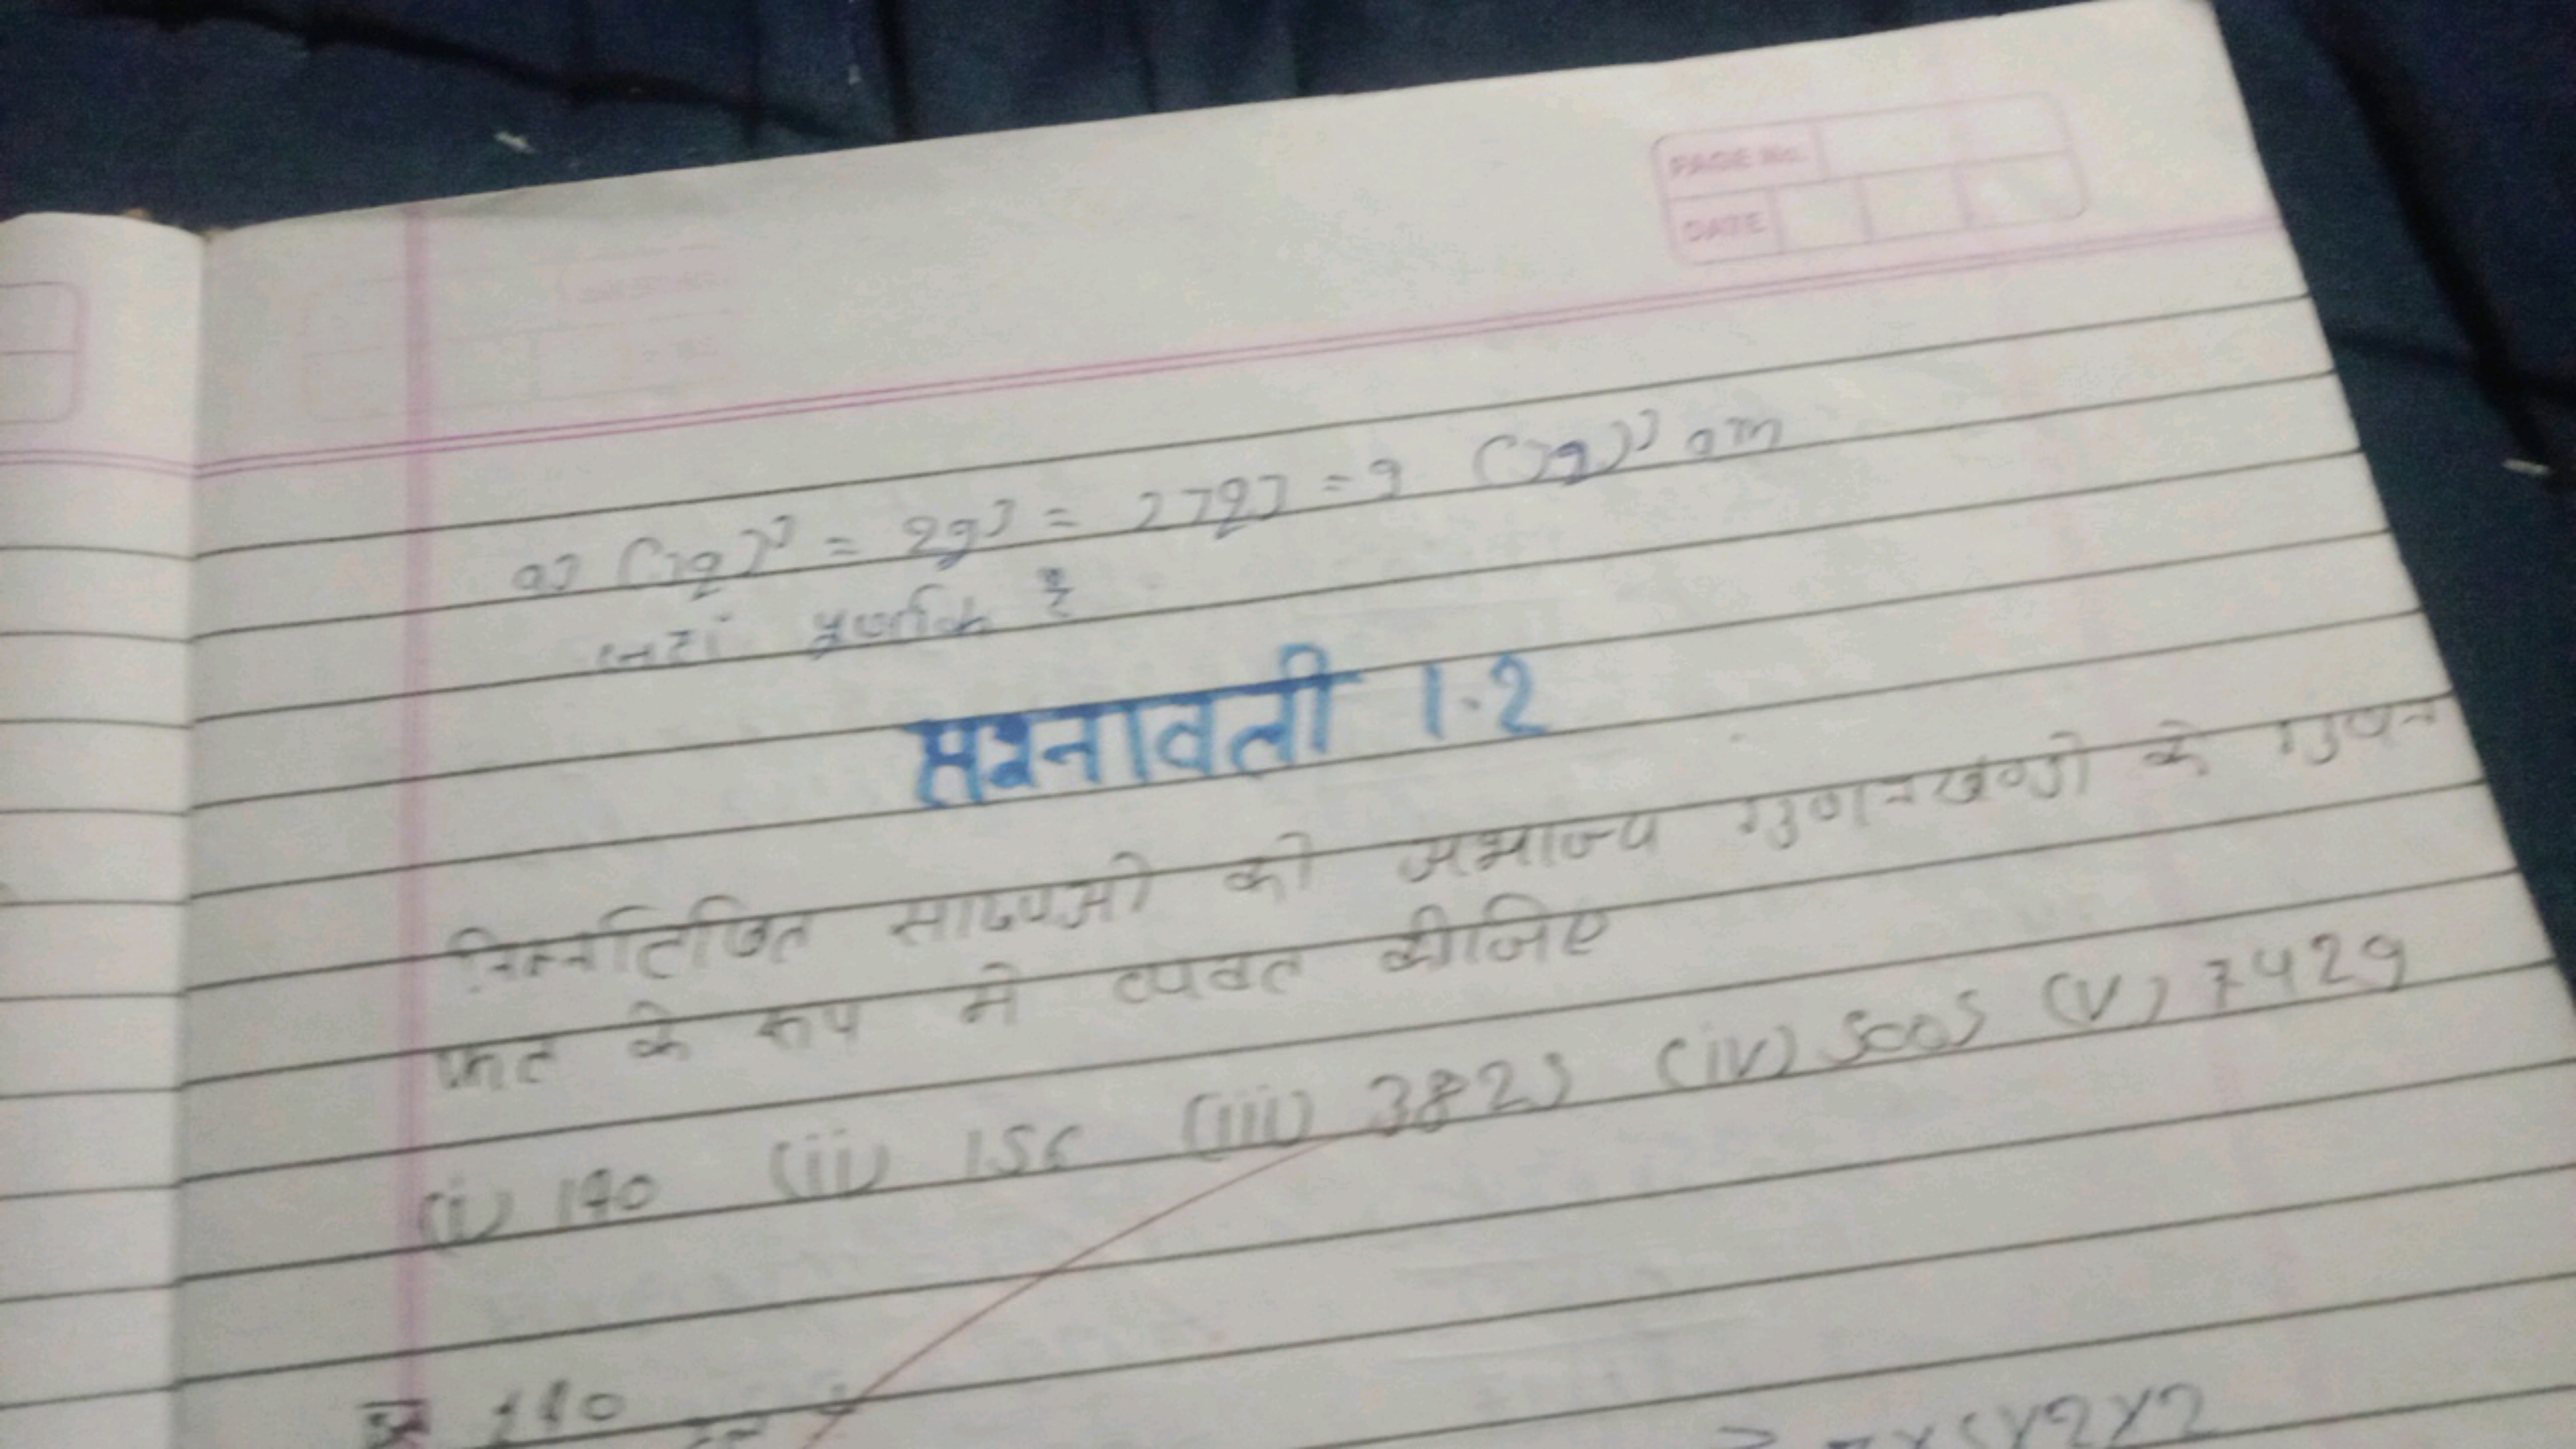 PAGE No.
DATE
(3q)³ = 9q³ = 27q3 = 9 (3q)³ am
जहां पूर्णांक है
प्रश्नावली 1.2
निम्नलिखित साख्याओ को अभाज्य गुणनखण्डो के गुणन
फल के रूप मे व्यक्त कीजिए
(i) 140 (ii) 156 (iii) 3825 (iv) 5005 (v) 7429
140